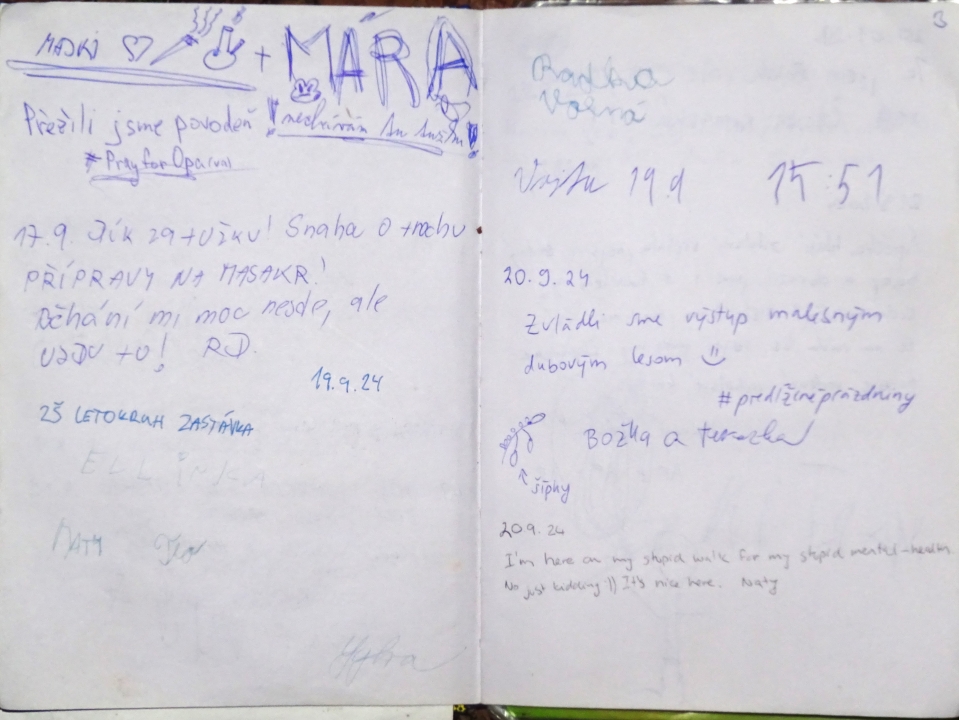 MAJKI
+ MÁRA
Přežili jsme povodeň
! neohrávám !
* Pray for Opava
17.9. Dík za tužku! Snaha o trochu
PŘÍPRAVY NA MASAKR!
Běhání mi moc nejde, ale
UJDU TO! RD.
19.9.24
ZŠ LETOKRUH ZASTÁVKA
ELLINKA
MATY
3
Radka
Volná
Vojta 19.9 15:51
20.9.24
Zvládli sme výstup malebným
dubovým lesom
#predĺženéprázdniny
Božka a terezka
šípky
20.9.24
I'm here on my stupid walk for my stupid mental-health
No just kidding :)) It's nice here. Naty